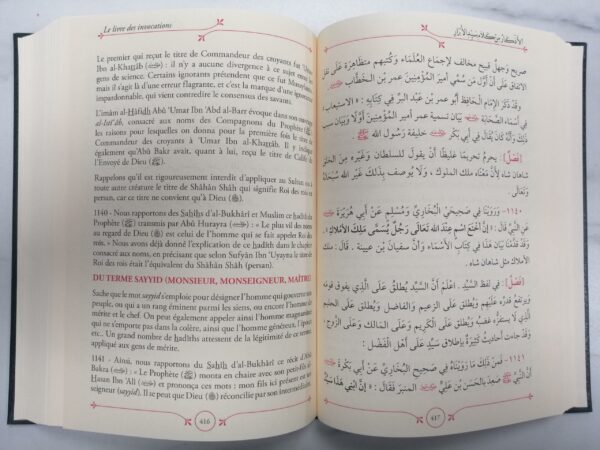 Le livre des invocations
Le premier qui reçut le titre de Commandeur des croyants fut 'Umar
Ibn al-Khaṭṭâb (ﷺ) : il n'y a aucune divergence à ce sujet entre les
gens de science. Certains ignorants prétendent que ce fut Musaylima
mais il s'agit là d'une erreur flagrante, et c'est la marque d'une ignorance
impardonnable, qui vient contredire le consensus des savants.
L'imâm al-Ḥâfiḍh Abû 'Umar Ibn 'Abd al-Barr évoque dans son ouvrage
consacré aux noms des Compagnons du Prophète (ﷺ)
les raisons pour lesquelles on donna pour la première fois le titre de
Commandeur des croyants à 'Umar Ibn al-Khaṭṭâb. Il y indique
également qu'Abû Bakr avait, quant à lui, reçu le titre de Calife de
l'Envoyé de Dieu (ﷺ).
Rappelons qu'il est rigoureusement interdit d'appliquer au Sultan ou à
toute autre créature le titre de Shâhân Shâh qui signifie Roi des rois en
persan, car ce titre ne convient qu'à Dieu (ﷻ).
1140 - Nous rapportons des Ṣaḥîḥs d'al-Bukhârî et Muslim ce ḥadîth du
Prophète (ﷺ) transmis par Abû Hurayra (ﷺ) : « Le plus vil des noms
au regard de Dieu (ﷻ) est celui de l'homme qui se fait appeler Roi des
rois. » Nous avons déjà donné l'explication de ce ḥadîth dans le chapitre
consacré aux noms, en précisant que selon Sufyân Ibn 'Uyayna le titre de
Roi des rois était l'équivalent du Shâhân Shâh (persan).
DU TERME SAYYID (MONSIEUR, MONSEIGNEUR, MAÎTRE)
Sache que le mot sayyid s'emploie pour désigner l'homme qui gouverne un
peuple, ou qui a un rang éminent parmi les siens, ou encore l'homme de
mérite et le chef. On peut également appeler ainsi l'homme magnanime
qui ne s'emporte pas dans la colère, ainsi que l'homme généreux, l'époux,
etc... Un grand nombre de ḥadîths attestent de la légitimité de ce terme
appliqué aux gens de mérite.
1141 - Ainsi, nous rapportons du Ṣaḥîḥ d'al-Bukhârî ce récit d'Abû
Bakra (ﷺ) : « Le Prophète (ﷺ) monta en chaire avec son petit-fils al-
Ḥasan Ibn 'Alî (ﷺ) et prononça ces mots : mon fils ici présent est un
seigneur (sayyid). Il se peut que Dieu (ﷻ) réconcilie par son intermédiaire
416
الأذكار من كلام سيد الأبرار
صريح وجهل قبيح مخالف لإجماع العلماء وكتبهم متظاهرة على نقل
الاتفاق على أن أوّل من سُمّي أمير المؤمنين عمر بن الخطّاب
وقد ذكر الإمام الحافظ أبو عمر بن عبد البرّ في كتابه : « الاستيعاب »
بيان تسمية عمر أمير المؤمنين أوّلًا وبيان سبب
ذلك وأنّه كان يُقال في أبي بكر خليفة رسول الله
[فَصْلٌ] : يحرمُ تحريمًا غليظًا أنْ يقولَ للسلطان وغيره من الخلق
شاهان شاه لأنّ معناه ملك الملوك ، ولا يُوصف بذلك غير الله سبحانه
١١٤٠ - وروينا في صحيحي البخاري ومسلم عن أبي هريرة
عن النبيّ قال : « إنّ أخنع اسم عند الله تعالى رجُل يُسمّى ملك الأملاك »
وقد قدّمنا بيان هذا في كتاب الأسماء ، وأن سفيان بن عيينة . قال : ملك
الأملاك مثل شاهان شاه .
[فَصْلٌ] : في لفظ السّيّد . اعلم أنّ السيد يُطلق على الذي يفوق قومه
ويرتفع قدره عليهم ويُطلق على الزعيم والفاضل ويُطلق على الحليم
الذي لا يستفزّه غضبه ويُطلق على الكريم وعلى المالك وعلى الزوج ،
وقد جاءت أحاديثُ كثيرةٌ بإطلاق سيّد على أهل الفضل .
١١٤١ - فمن ذلك ما رويناه في صحيح البخاري عن أبي بكرة
أنّ النبيَّ صعد بالحسن بن عليّ المنبر فقال : « إنّ ابني هذا سيّد
417